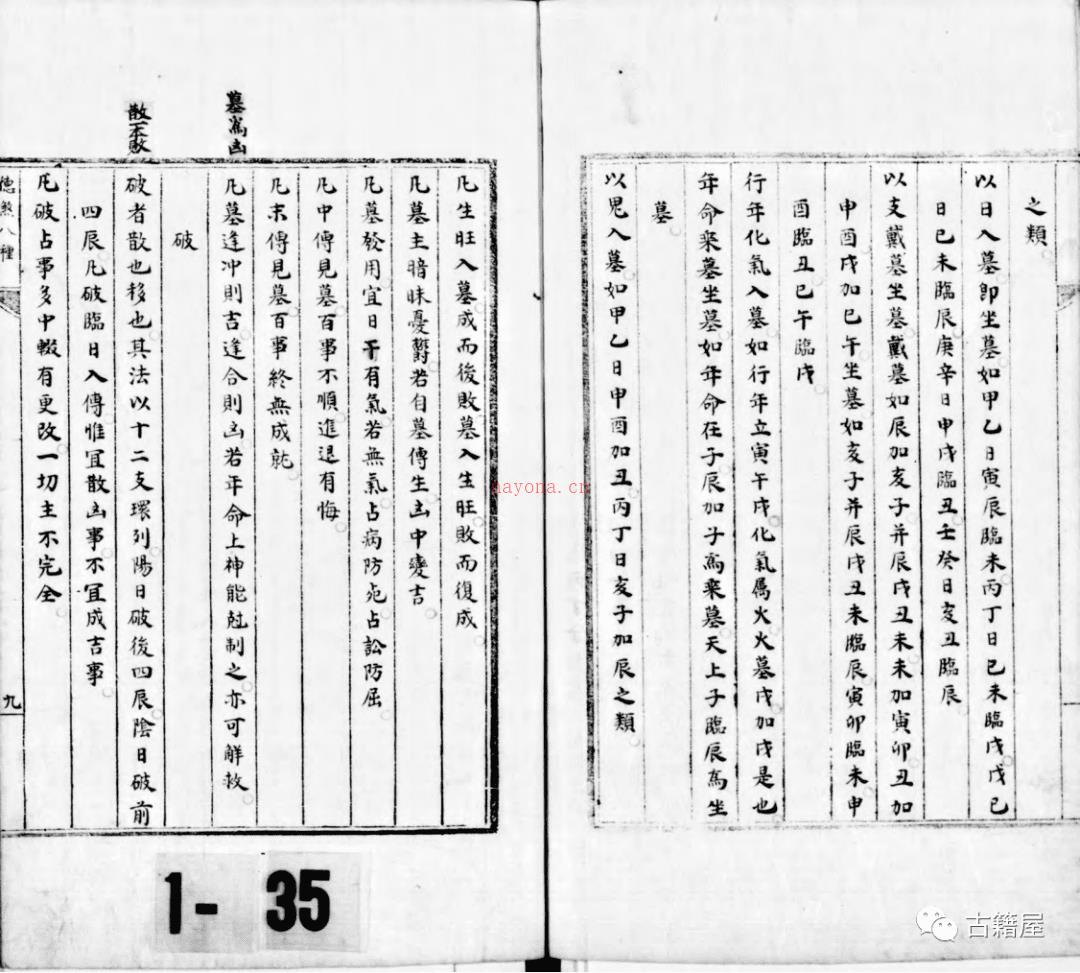 之類
以日入墓卽坐墓如甲乙日寅辰臨未丙丁日巳未臨戌戊己
日巳未臨辰庚辛日申戌臨丑壬癸日亥丑臨辰
以支戴墓坐墓戴墓如辰加亥子并辰戌丑未未加寅卯丑加
申酉戌加巳午坐墓如亥子并辰戌丑未臨辰寅卯臨未申
酉臨丑巳午臨戌
行年化氣入墓如行年立寅午戌化氣属火火墓戌加戌是也
年命乘墓坐墓如年命在子辰加子爲乘墓天上子臨辰爲坐
墓
以鬼入墓如甲乙日申酉加丑丙丁日亥子加辰之類
凡生旺入墓成而後敗墓入生旺敗而復成
凡墓主暗昧憂鬱若自墓傳生凶中變吉
凡墓發用宜日干有氣若無氣占病防死占訟防屈
凡中傳見墓百事不順進退有悔
凡末傳見墓百事終無成就
凡墓逢冲則吉逢合則凶若年命上神能尅制之亦可解救
墓爲凶
破
破者散也移也其法以十二支環列陽日破後四辰陰日破前
四辰凡破臨日入傳惟宜散凶事不宜成吉事
凡破占事多中輟有更改一切主不完全
德煞八種
九
nayona.cn
1-35
古籍屋